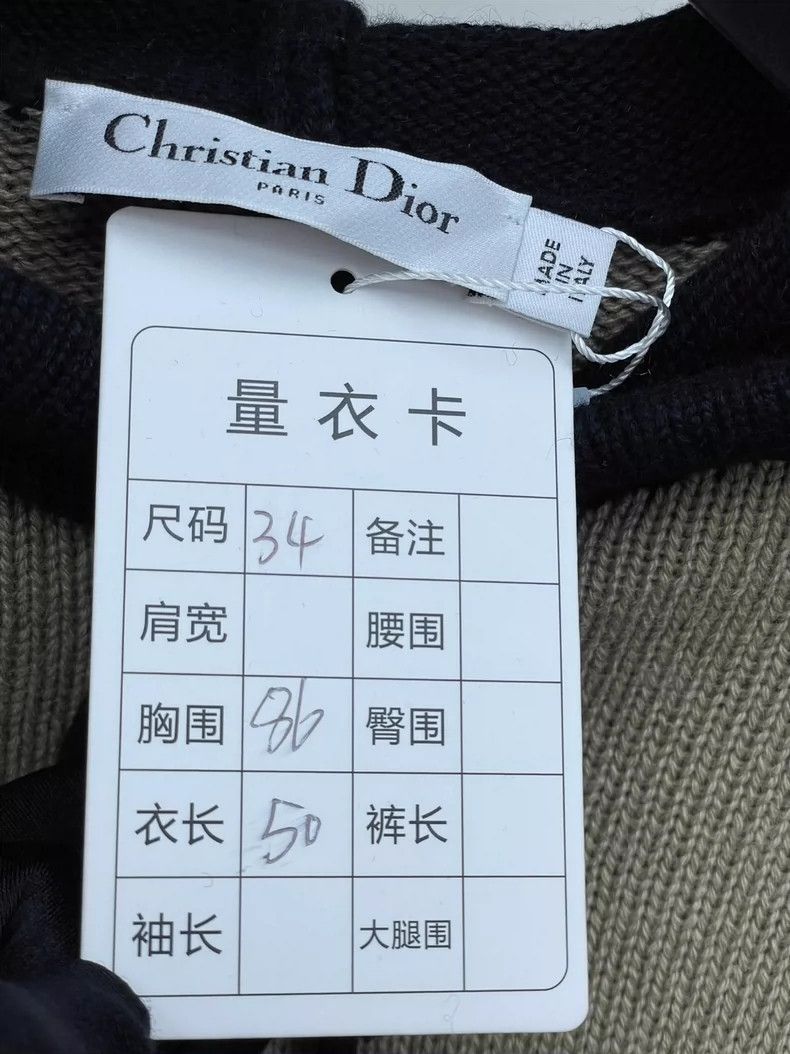 Christian Dior
PARIS
MADE
IN
ITALY
量衣卡
尺码 34 备注
肩宽 腰围
胸围 86 臀围
衣长 50 裤长
袖长 大腿围